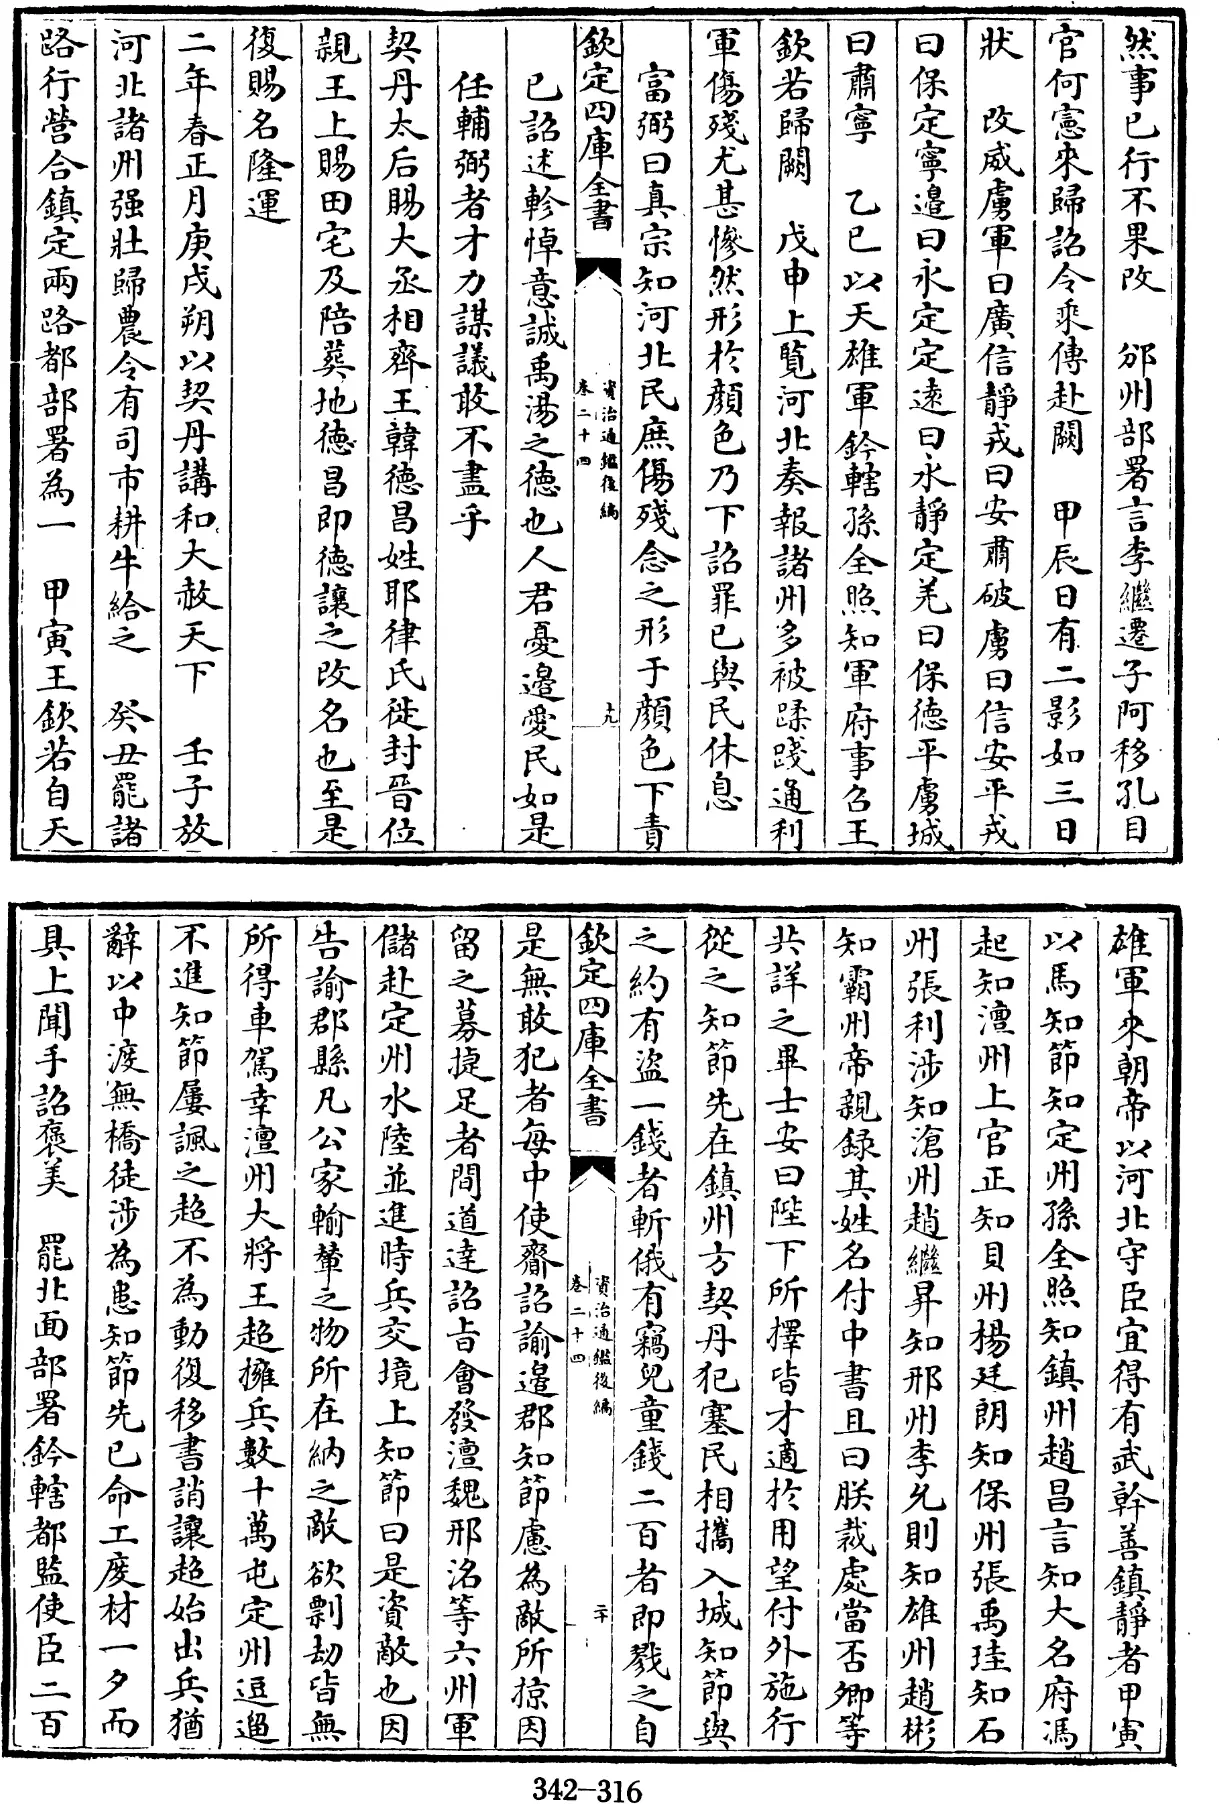 然事已行不果改　邠州部署言李繼遷子阿移孔目
官何憲來歸詔令乘傳赴闕　甲辰日有二影如三日
狀　改威虜軍曰廣信靜戎曰安肅破虜曰信安平戎
曰保定寧邉曰永定定逺曰永靜定羌曰保德平虜城
曰肅寧　乙巳以天雄軍鈐轄孫全照知軍府事召王
欽若歸闕　戊申上覧河北奏報諸州多被蹂踐通利
軍傷殘尤甚慘然形於顔色乃下詔罪已與民休息
富弼曰真宗知河北民庶傷殘念之形于顔色下責
欽定四庫全書
資治通鑑後編
卷二十四
十九
已詔述軫悼意誠禹湯之德也人君憂邉愛民如是
任輔弼者才力謀議敢不盡乎
契丹太后賜大丞相齊王韓德昌姓耶律氏徙封晉位
親王上賜田宅及陪葬地德昌即德讓之改名也至是
復賜名隆運
二年春正月庚戌朔以契丹講和大赦天下　壬子放
河北諸州强壯歸農令有司市耕牛給之　癸丑罷諸
路行營合鎮定兩路都部署為一　甲寅王欽若自天
雄軍來朝帝以河北守臣宜得有武幹善鎮靜者甲寅
以馬知節知定州孫全照知鎮州趙昌言知大名府馮
起知澶州上官正知貝州楊延朗知保州張禹珪知石
州張利渉知滄州趙繼昇知邢州李允則知雄州趙彬
知霸州帝親録其姓名付中書且曰朕裁處當否卿等
共詳之畢士安曰陛下所擇皆才適於用望付外施行
從之知節先在鎮州方契丹犯塞民相攜入城知節與
之約有盜一錢者斬俄有竊兒童錢二百者即戮之自
欽定四庫全書
資治通鑑後編
卷二十四
二十
是無敢犯者每中使齎詔諭邉郡知節慮為敵所掠因
留之募捷足者間道達詔㫖會發澶魏邢洺等六州軍
儲赴定州水陸並進時兵交境上知節曰是資敵也因
告諭郡縣凡公家輸輦之物所在納之敵欲剽刼皆無
所得車駕幸澶州大將王超擁兵數十萬屯定州逗遛
不進知節屢諷之超不為動復移書誚讓超始出兵猶
辭以中渡無橋徒涉為患知節先已命工庀材一夕而
具上聞手詔褒美　罷北面部署鈐轄都監使臣二百
342—316